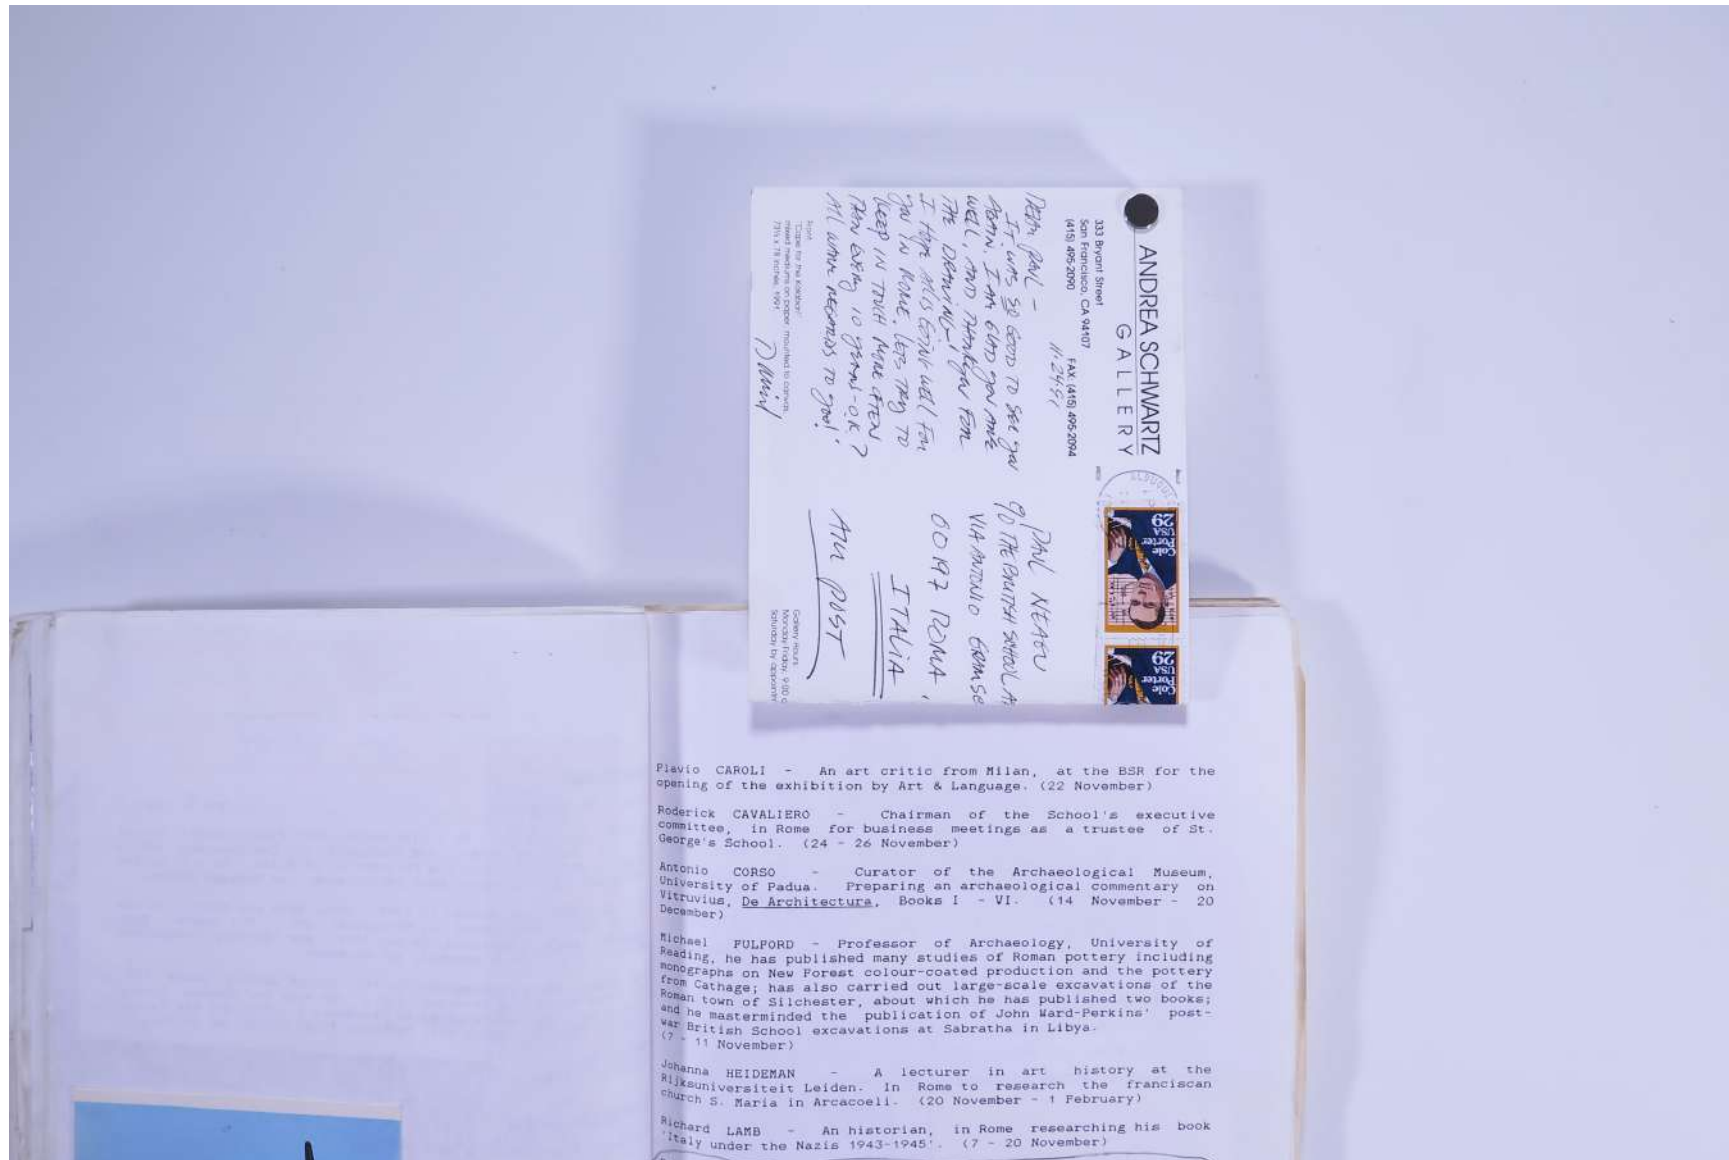 ANDREA SCHWARTZ
GALLERY
333 Bryant Street
San Francisco, CA 94107
(415) 495-2090
FAX: (415) 495-2094
11·24·91
DEAR PAUL –
IT WAS SO GOOD TO SEE YOU
AGAIN. I AM GLAD YOU ARE
WELL, AND THANKYOU FOR
THE DRAWING!
I HOPE ALL IS GOING WELL FOR
YOU IN ROME. LETS TRY TO
KEEP IN TOUCH MORE OFTEN
THAN EVERY 10 YEARS – O.K?
ALL WARM REGARDS TO YOU!
Front
mixed mediums on paper, mounted to canvas,
inches, 1991
29
USA
Cole
Porter
29
USA
Cole
Porter
PAUL NEAGU
c/o THE BRITISH SCHOOL A
VIA ANTONIO GRAMSC
00197 ROMA,
ITALIA
AIR POST
Gallery Hours
Monday-Friday, 9:00
Saturday by appointm
Flavio CAROLI - An art critic from Milan, at the BSR for the
opening of the exhibition by Art & Language. (22 November)
Roderick CAVALIERO - Chairman of the School's executive
committee, in Rome for business meetings as a trustee of St.
George's School. (24 - 26 November)
Antonio CORSO - Curator of the Archaeological Museum,
University of Padua. Preparing an archaeological commentary on
Vitruvius, De Architectura, Books I - VI. (14 November - 20
December)
Michael FULFORD - Professor of Archaeology, University of
Reading, he has published many studies of Roman pottery including
monographs on New Forest colour-coated production and the pottery
from Cathage; has also carried out large-scale excavations of the
Roman town of Silchester, about which he has published two books;
and he masterminded the publication of John Ward-Perkins' post-
war British School excavations at Sabratha in Libya.
(7 - 11 November)
Johanna HEIDEMAN - A lecturer in art history at the
Rijksuniversiteit Leiden. In Rome to research the franciscan
church S. Maria in Arcacoeli. (20 November - 1 February)
Richard LAMB - An historian, in Rome researching his book
'Italy under the Nazis 1943-1945'. (7 - 20 November)